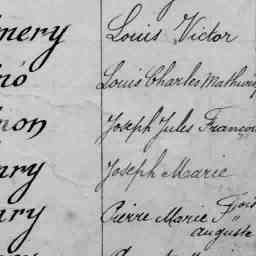 mery Louis Victor
no Louis Charles Mathurin
non Joseph Jules Françoi
nry Joseph Marie
ury Pierre Marie Fçois
auguste